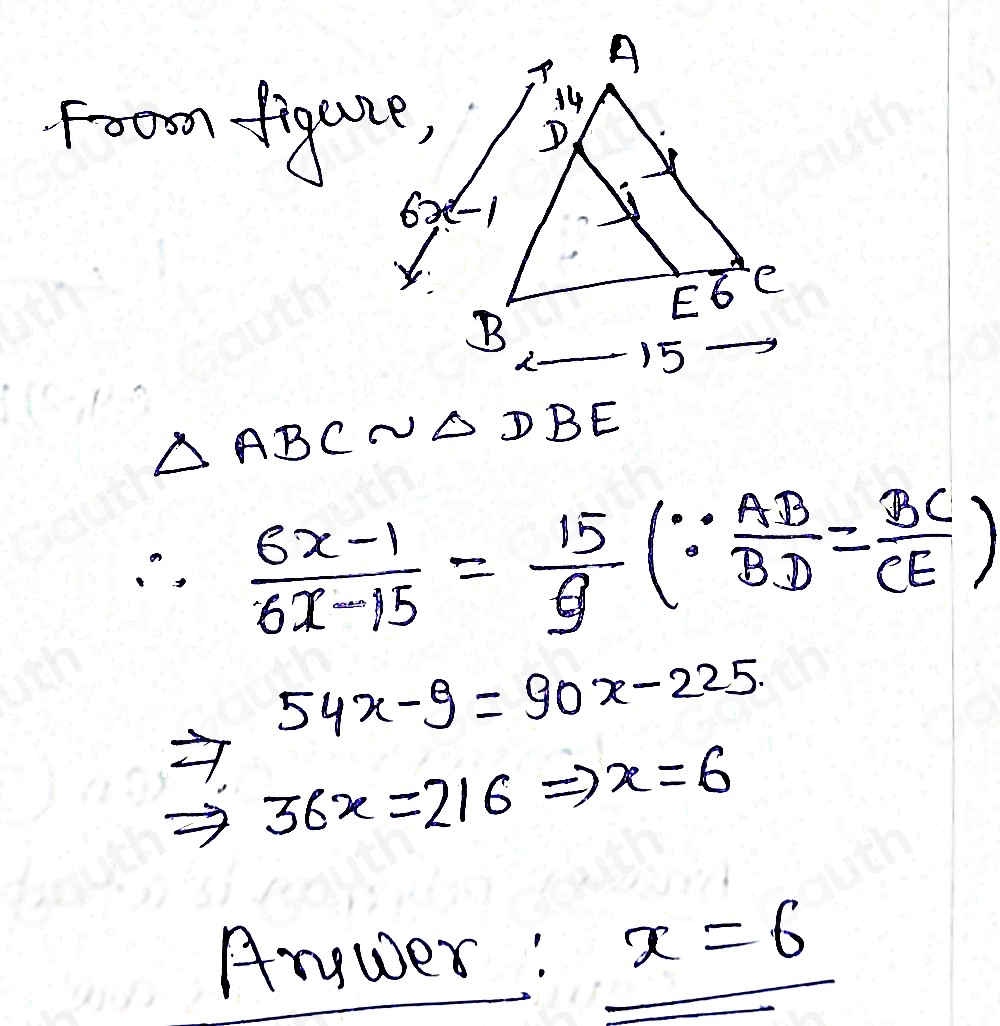 From figure,
A
14
D
6x-1
B
E 6 C
15
△ ABC ~ △ DBE
∴ (6x-1)/(6x-15) = 15/9 (∵ AB/BD = BC/CE)
⇒ 54x-9 = 90x-225.
⇒ 36x = 216 ⇒ x = 6
Answer : x = 6
Gauth